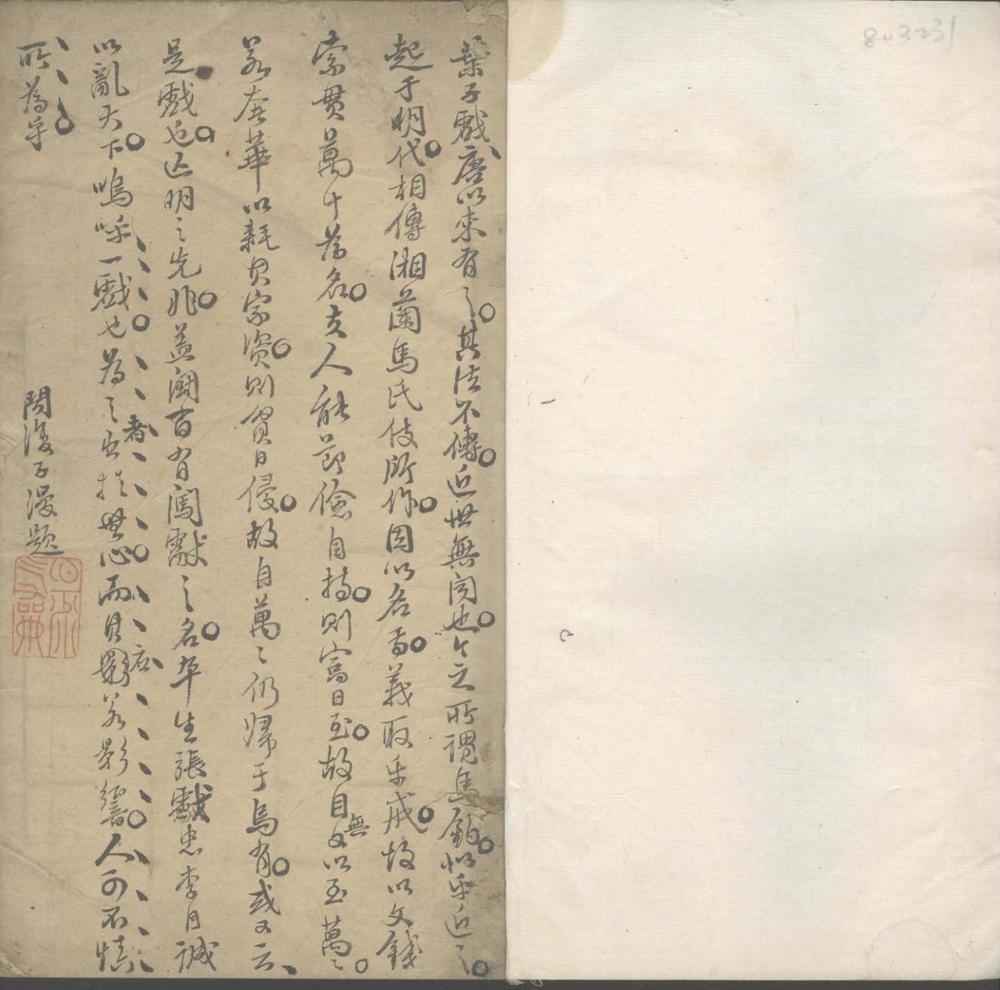 葉子戲唐以來有之其法不傳近世無聞也今之所謂馬釣似乎近之
起于明代相傳湘蘭馬氏伎所作因以名焉義取乎戒故以文錢
索貫萬十為名言人能節儉自持則富日至故自無文以至萬〻
若奢華以耗其家資則貧日侵故自萬〻仍歸于烏有或又云
是戲也亡明之先兆蓋闖百有闖獻之名卒生張獻忠李自誠
以亂天下嗚呼一戲也為之者出於無心而其應若影響人可不慎
所為乎
閒復子漫題
803231